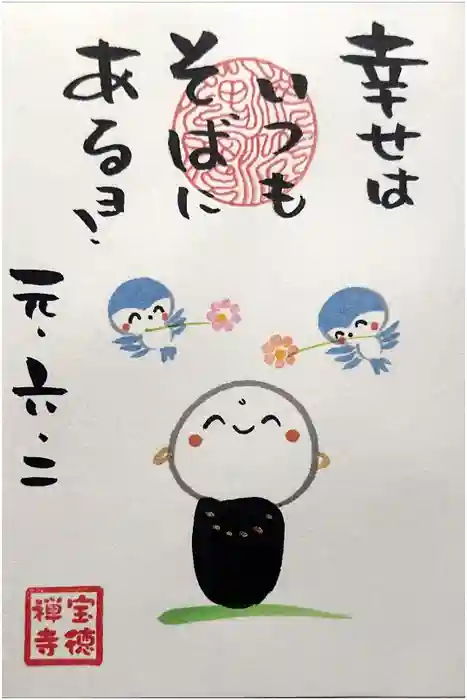 幸せは
いつも
そばに
あるヨ!
元.六.二
宝徳
禅寺